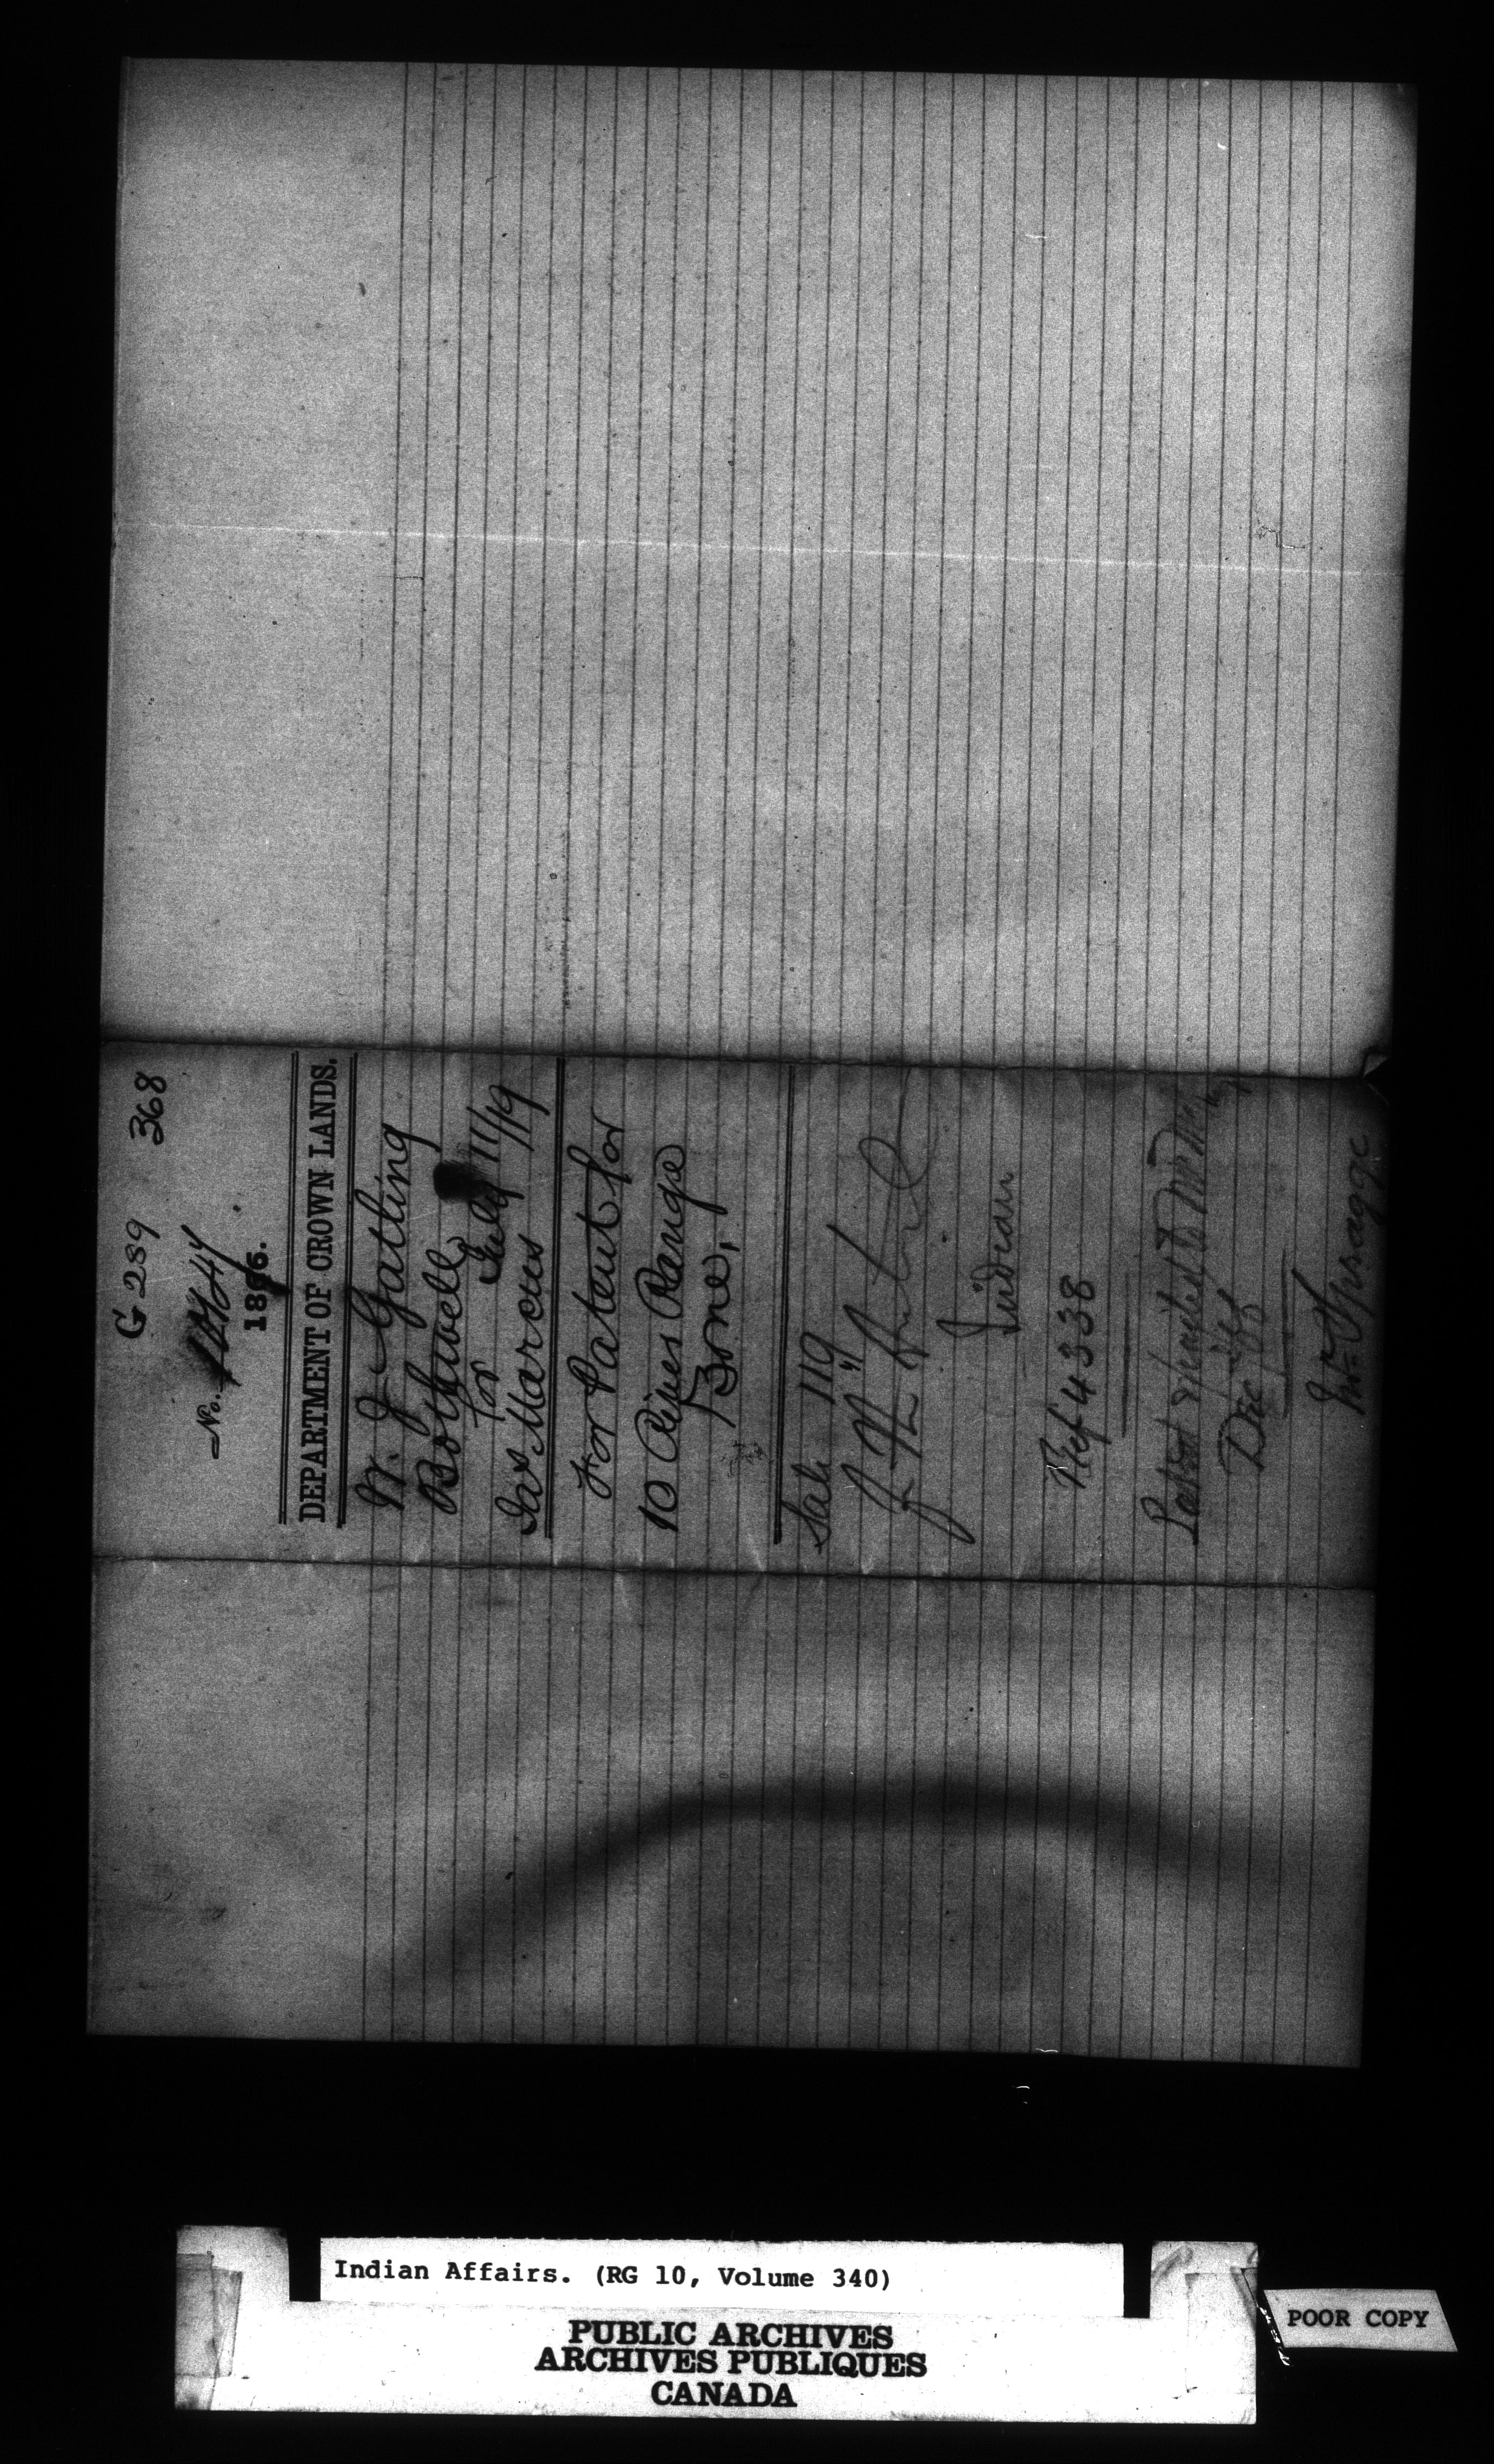 G 289 368
No.
1866.
DEPARTMENT OF CROWN LANDS.
W. J. Gatling
Bothwell
for July 11/19
Jas Marcus
For Patent for
10 River Range
Zone,
Sale 119
Indian
Ref 4338
Patent
Dec
Mr Spragge
Indian Affairs. (RG 10, Volume 340)
PUBLIC ARCHIVES
ARCHIVES PUBLIQUES
CANADA
POOR COPY